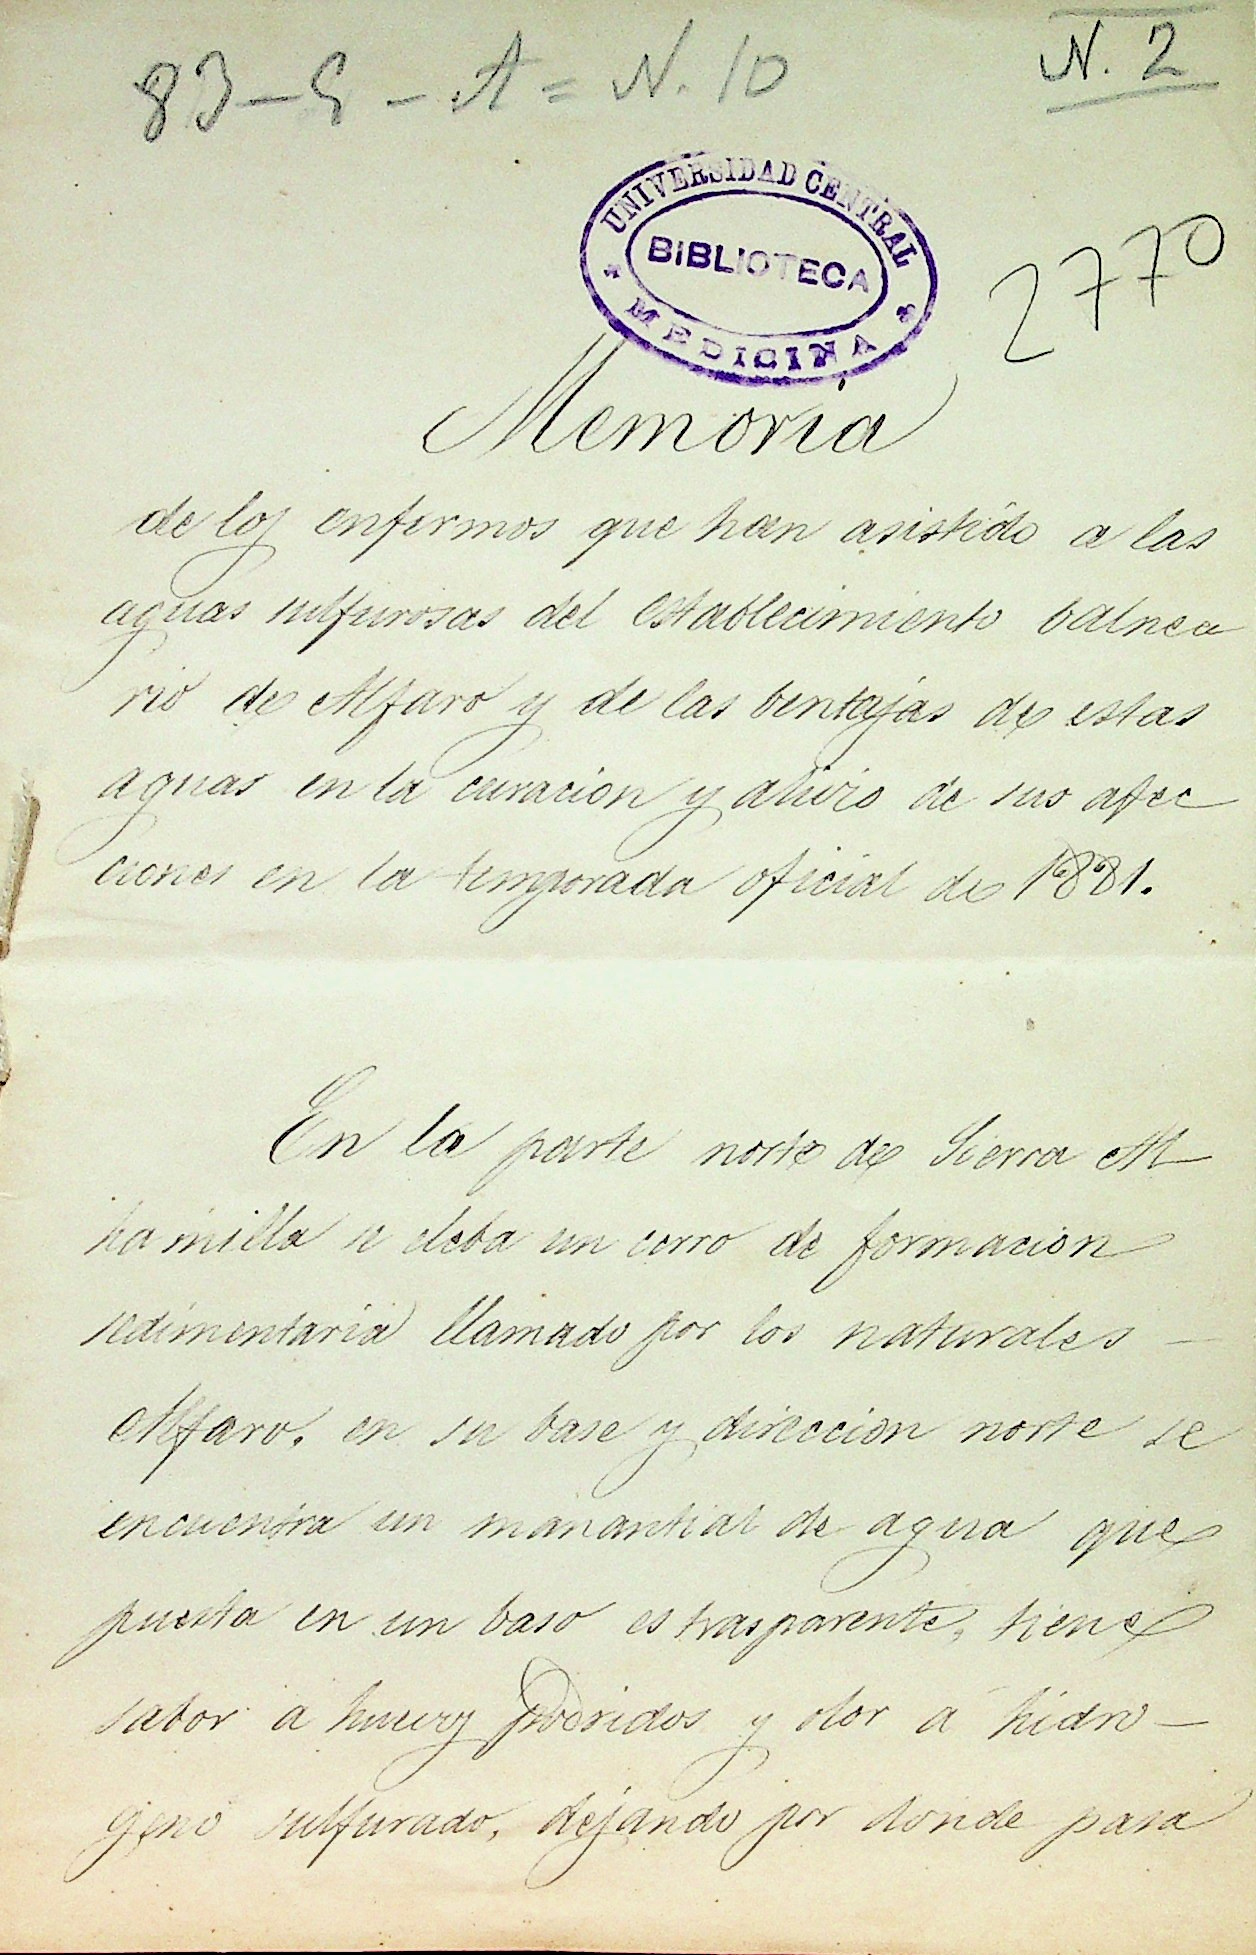 N. 2
83-5-A=N. 10
UNIVERSIDAD CENTRAL
BIBLIOTECA
MEDICINA
2770
Memoria
de los enfermos que han asistido a las
aguas sulfurosas del establecimiento balnea
rio de Alfaro y de las bentajas de estas
aguas en la curacion y alivio de sus afec
ciones en la temporada oficial de 1881.
En la parte norte de Sierra Al-
hamilla se eleba un cerro de formacion
sedimentaria llamado por los naturales -
Alfaro. en su base y direccion norte se
encuentra un manantial de agua que
puesta en un baso es trasparente, tiene
sabor a huevos podridos y olor a hidro-
geno sulfurado, dejando por donde pasa